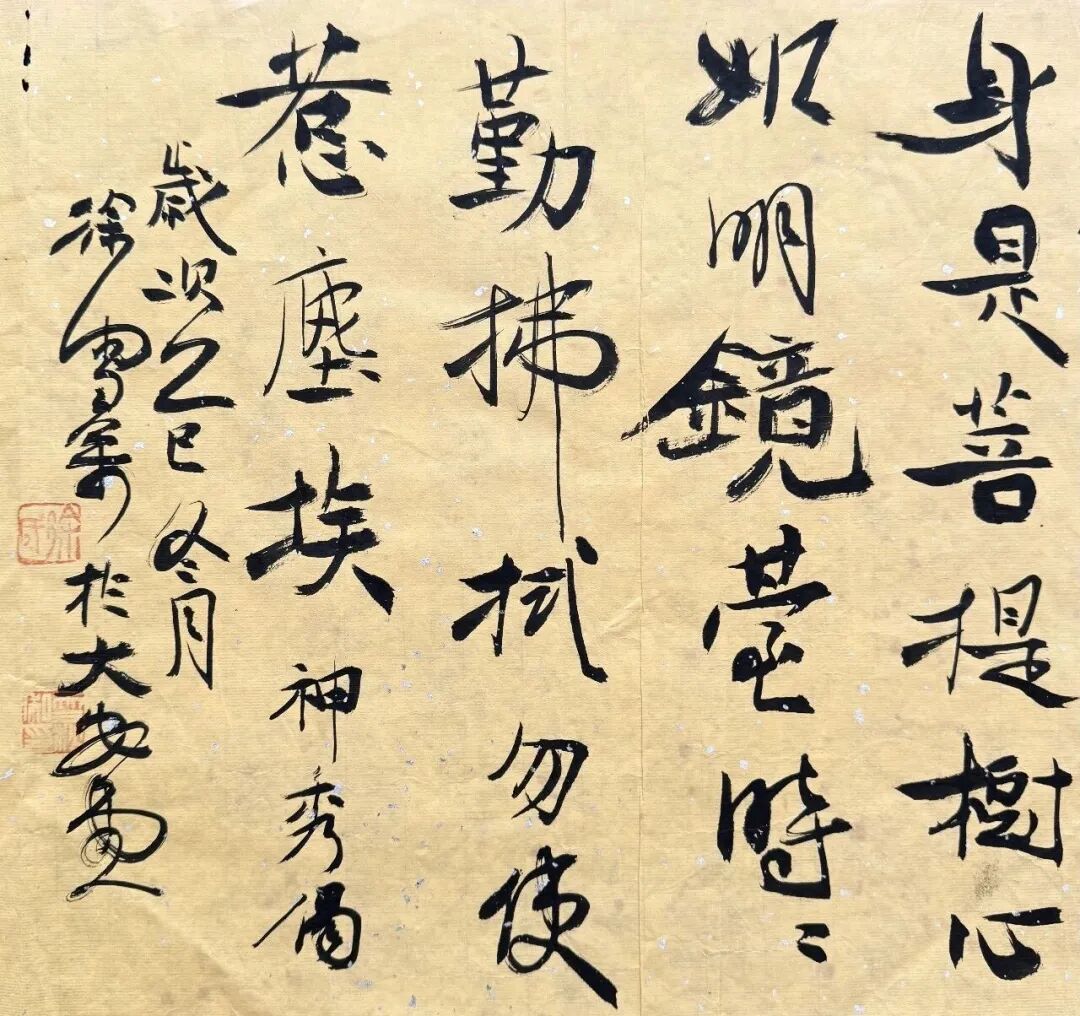 身是菩提樹心
如明鏡臺時〻
勤拂拭勿使
惹塵埃 神秀偈
歲次乙巳冬月
徐 於大